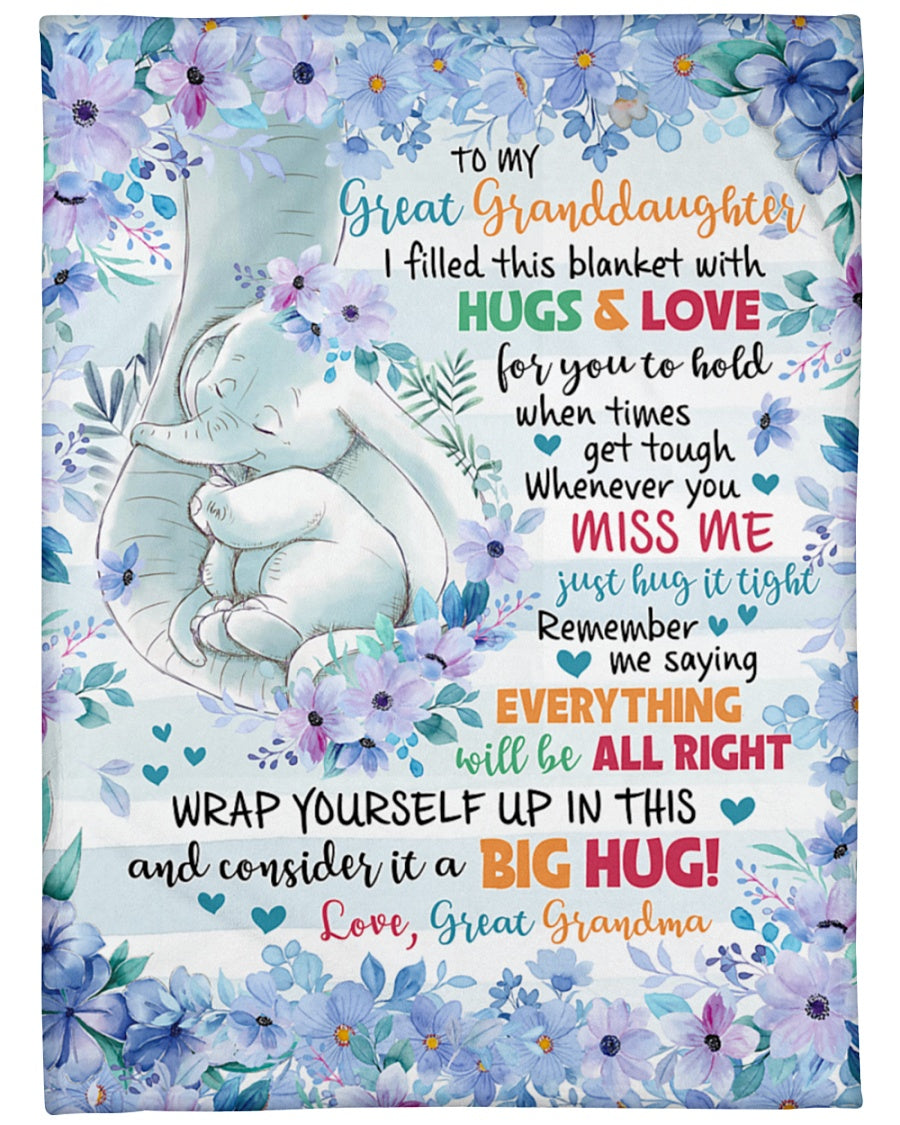 TO MY
Great Granddaughter
I filled this blanket with
HUGS & LOVE
for you to hold
when times
get tough
Whenever you
MISS ME
just hug it tight
Remember
me saying
EVERYTHING
will be ALL RIGHT
WRAP YOURSELF UP IN THIS
and consider it a BIG HUG!
Love, Great Grandma